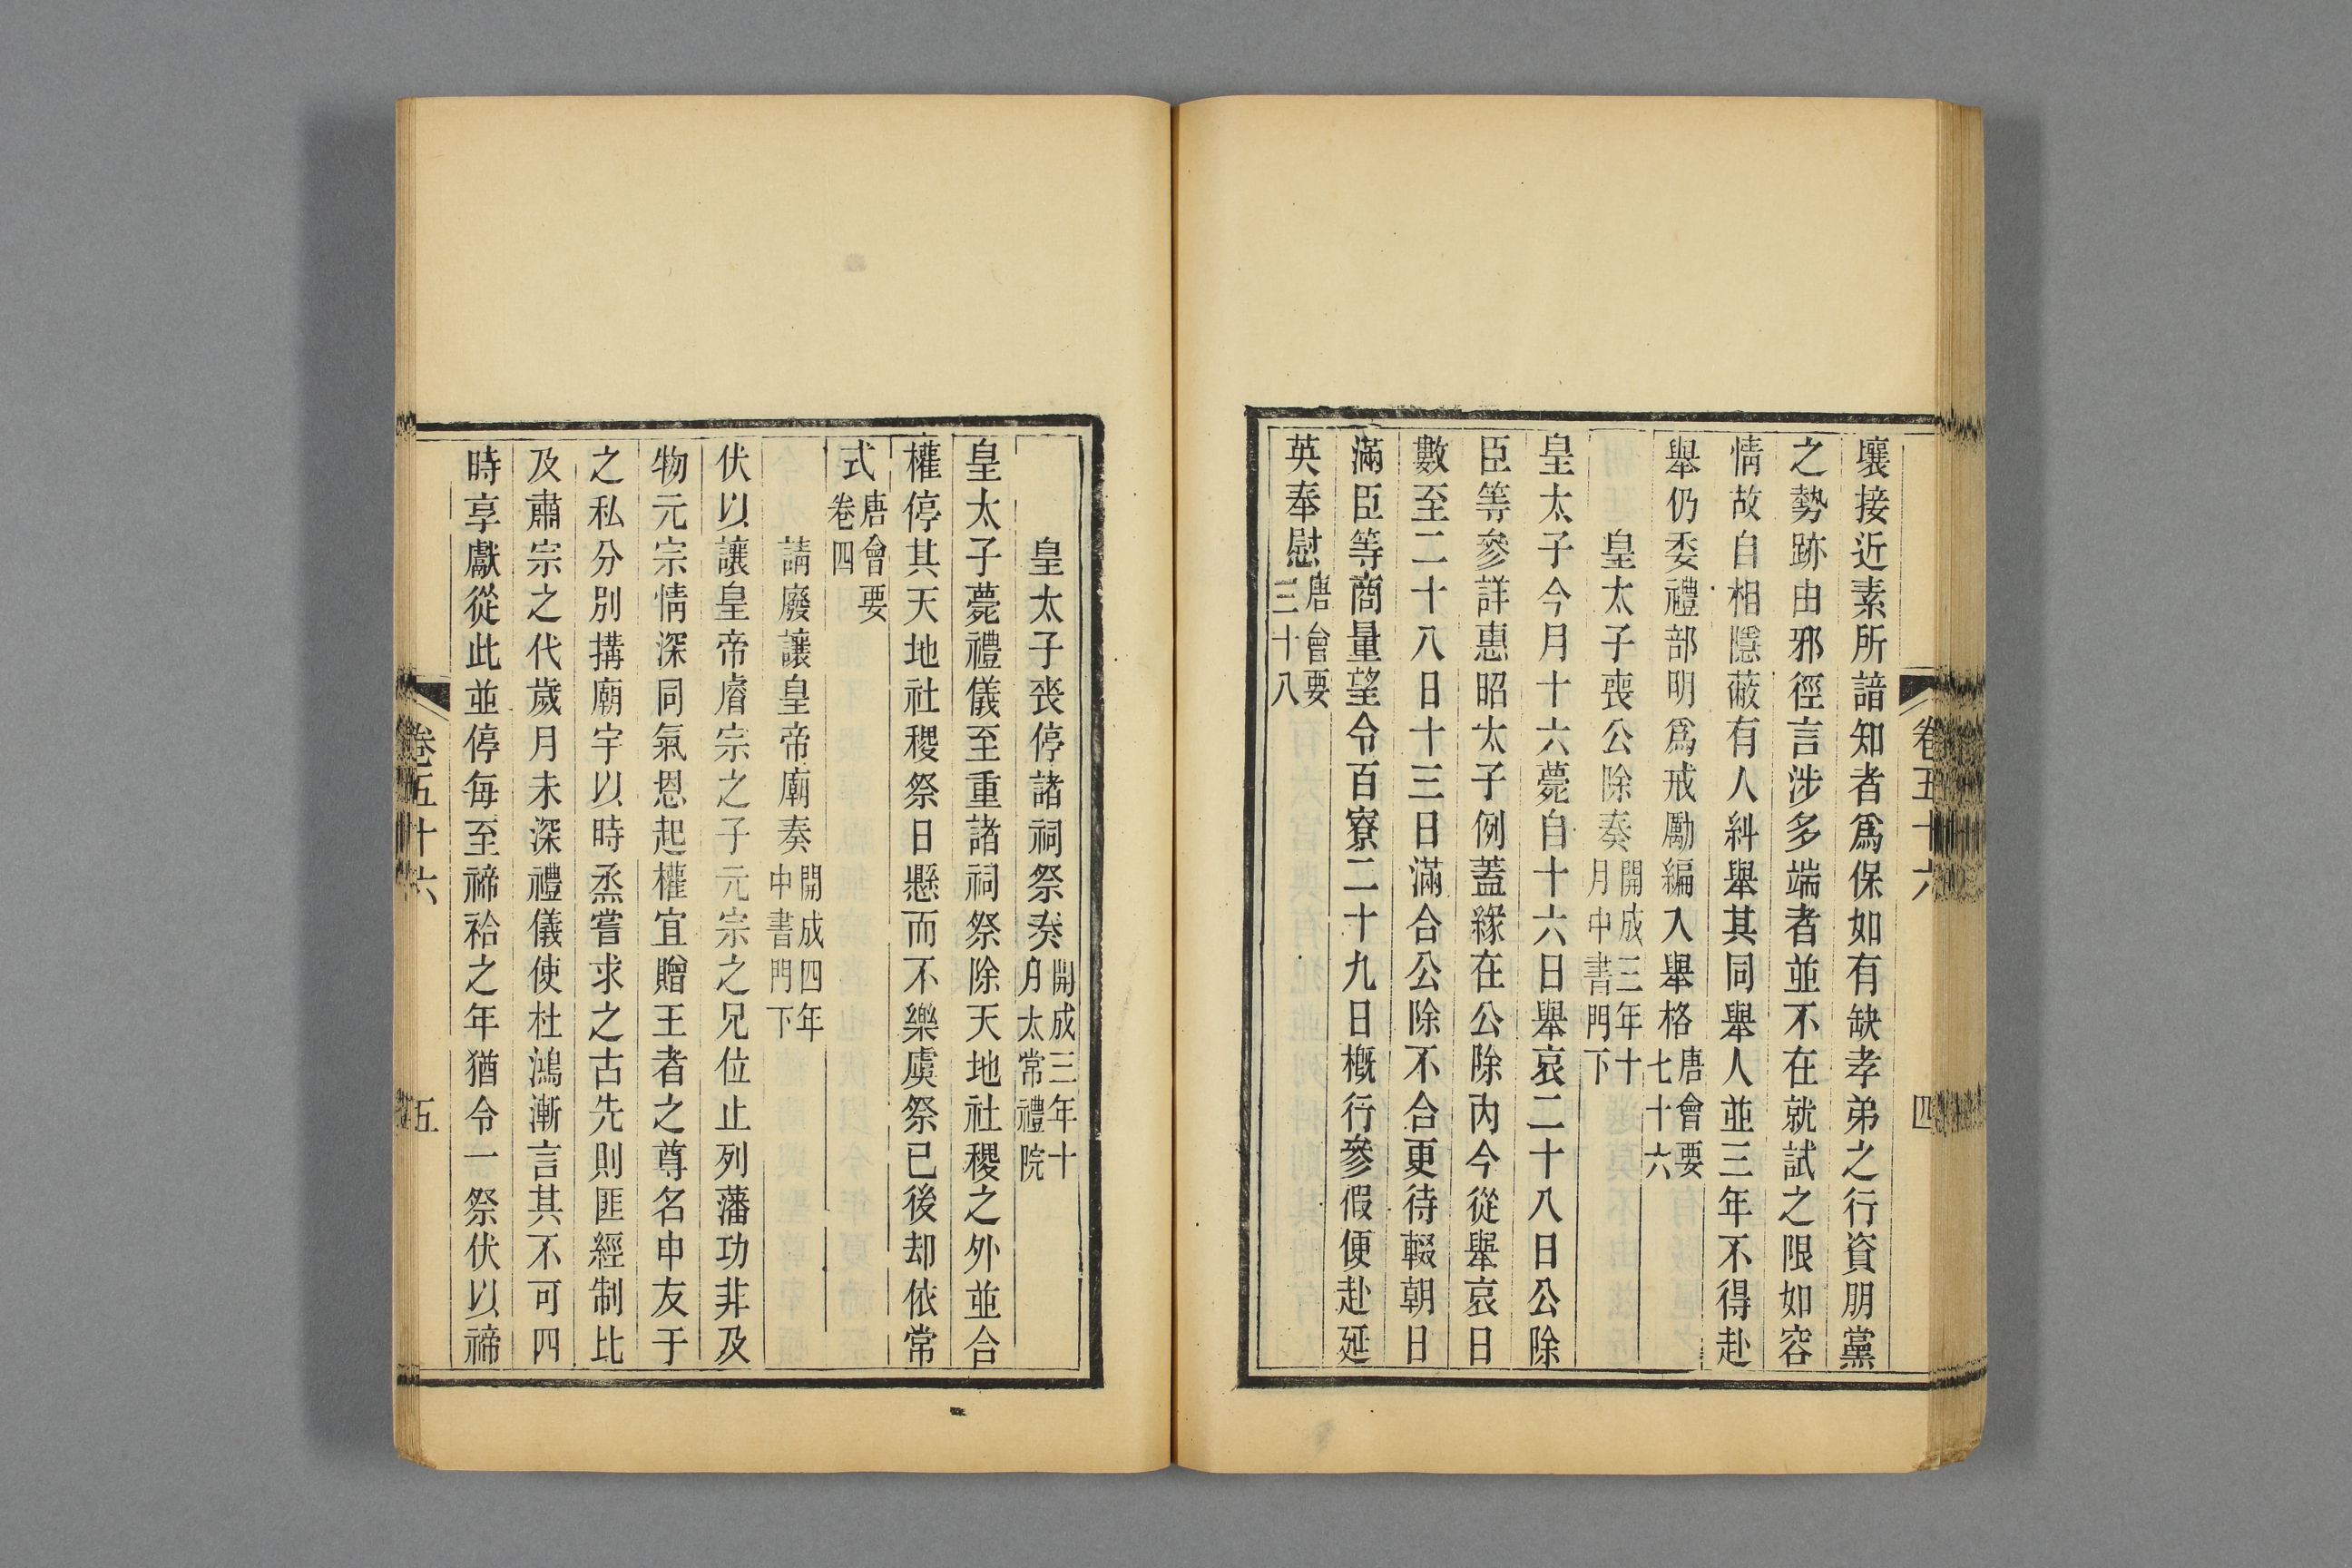 壤接近素所諳知者爲保如有缺孝弟之行資朋黨
之勢跡由邪徑言涉多端者並不在就試之限如容
情故自相隱蔽有人糾舉其同舉人並三年不得赴
舉仍委禮部明爲戒勵編入舉格唐會要七十六
皇太子喪公除奏開成三年十月中書門下
皇太子今月十六薨自十六日舉哀二十八日公除
臣等參詳惠昭太子例蓋緣在公除內今從舉哀日
數至二十八日十三日滿合公除不合更待輟朝日
滿臣等商量望令百寮二十九日槪行參假便赴延
英奉慰唐會要三十八
卷五十六
四
皇太子喪停諸祠祭奏開成三年十月太常禮院
皇太子薨禮儀至重諸祠祭除天地社稷之外並合
權停其天地社稷祭日懸而不樂虞祭已後却依常
式唐會要卷四
請廢讓皇帝廟奏開成四年中書門下
伏以讓皇帝睿宗之子元宗之兄位止列藩功非及
物元宗情深同氣恩起權宜贈王者之尊名申友于
之私分別搆廟宇以時烝嘗求之古先則匪經制比
及肅宗之代歲月未深禮儀使杜鴻漸言其不可四
時享獻從此並停每至禘祫之年猶令一祭伏以禘
卷五十六
五